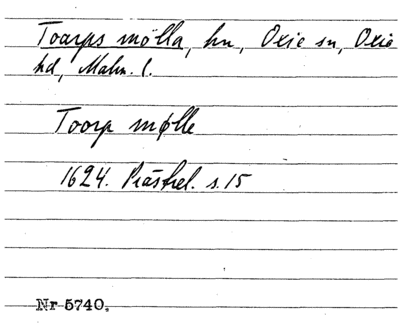 Toarps mölla, hn, Oxie sn, Oxie
hd, Malm. l.
Toorp mølle
1624. Prästrel. s. 15
Nr 5740.